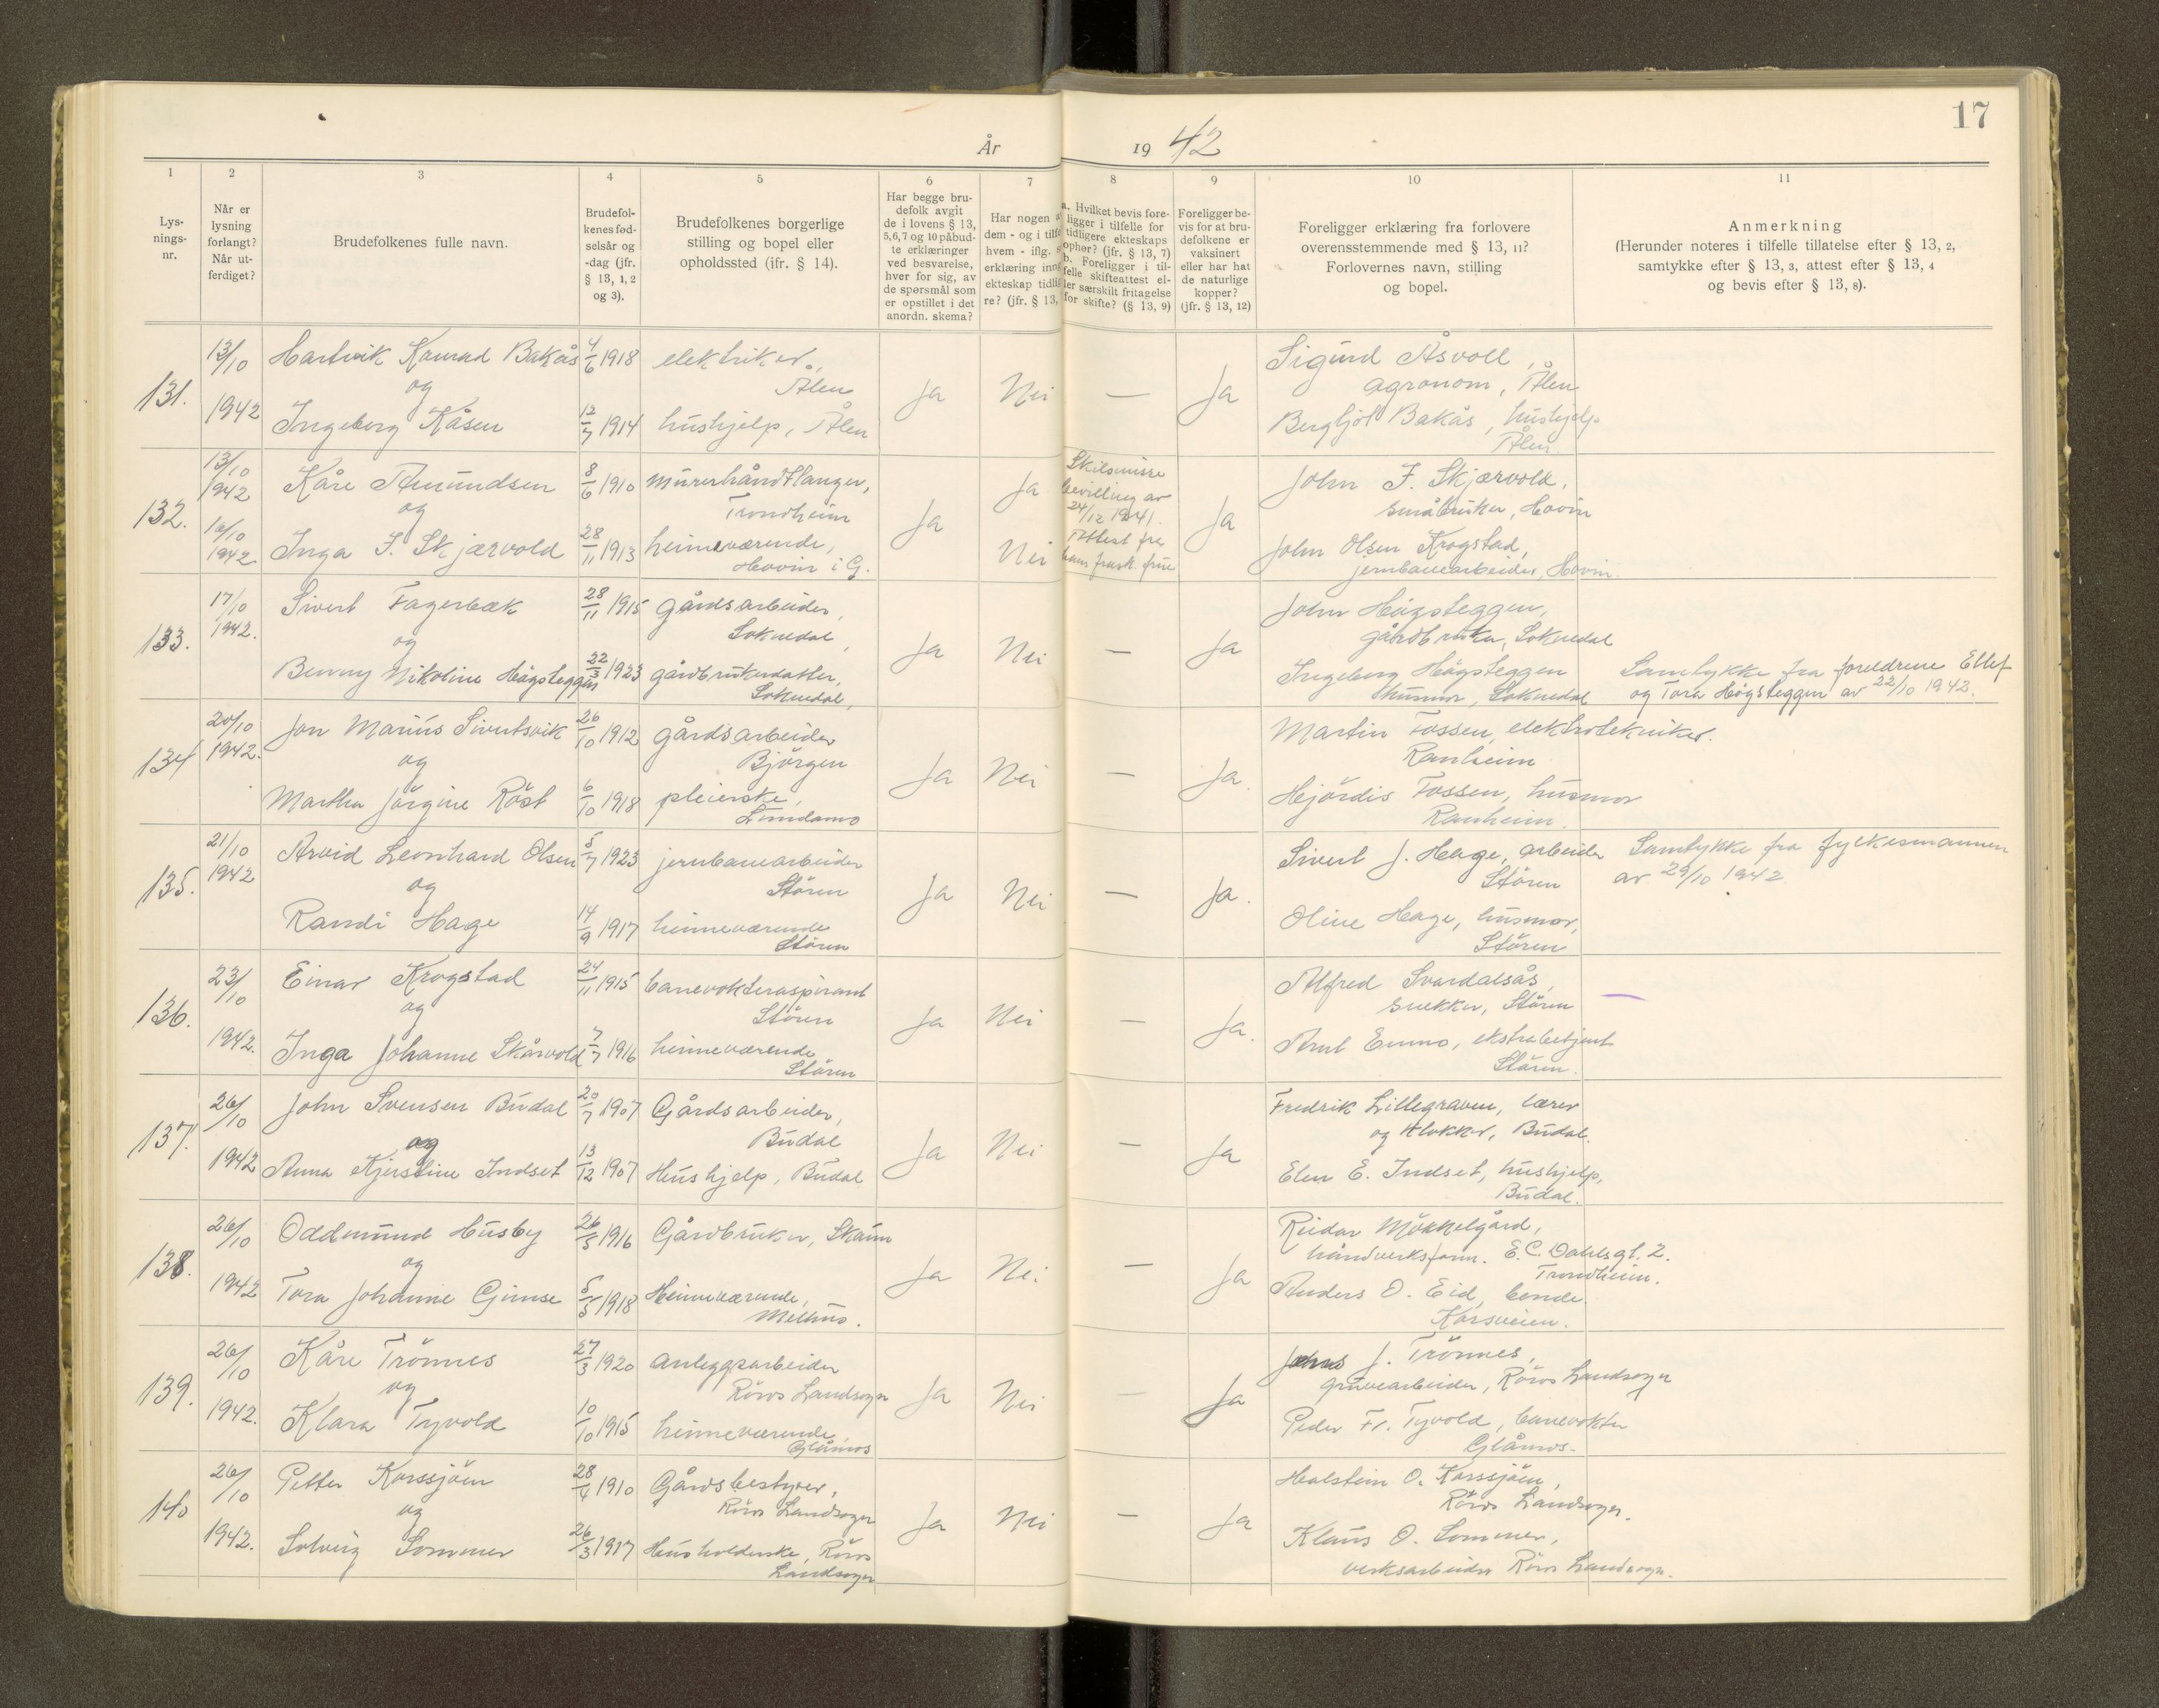 17
År 1942
1 2 3 4 5 6 7 8 9 10 11
Lys-
nings-
nr.
Når er
lysning
forlangt?
Når ut-
ferdiget?
Brudefolkenes fulle navn.
Brudefol-
kenes fød-
selsår og
-dag (jfr.
§ 13, 1, 2
og 3).
Brudefolkenes borgerlige
stilling og bopel eller
opholdssted (jfr. § 14).
Har begge bru-
defolk avgit
de i lovens § 13,
5, 6, 7 og 10 påbud-
te erklæringer
ved besvarelse,
hver for sig, av
de spørsmål som
er opstillet i det
anordn. skema?
Har nogen
dem - og i tilfe
hvem - iflg.
erklæring inng
ekteskap tidli
re? (jfr. § 13,
a. Hvilket bevis fore-
ligger i tilfelle for
tidligere ekteskaps
ophør? (jfr. § 13, 7)
b. Foreligger i til-
felle skifteattest el-
ler særskilt fritagelse
for skifte? (§ 13, 9)
Foreligger be-
vis for at bru-
defolkene er
vaksinert
eller har hat
de naturlige
kopper?
(jfr. § 13, 12)
Foreligger erklæring fra forlovere
overensstemmende med § 13, 11?
Forlovernes navn, stilling
og bopel.
Anmerkning
(Herunder noteres i tilfelle tillatelse efter § 13, 2,
samtykke efter § 13, 3, attest efter § 13, 4
og bevis efter § 13, 8).
131.
13/10
1942
Hartvik Konrad Bakås
og
Ingeborg Kåsen
4/6 1918
12/7 1914
elektriker,
Ålen
hushjelp, Ålen
Ja
Nei
—
Ja
Sigurd Åsvoll,
agronom, Ålen
Bergljot Bakås, hushjelp
Ålen
132.
13/10
1942
1942
Kåre Amundsen
og
Inga J. Skjærvold
8/6 1910
28/11 1913
murerhåndtlanger,
Trondheim
heimeværende,
Hovin i G.
Ja
Ja
Nei
Skilsmisse
bevilling av
24/12 1941.
Attest fra
Ja
John J. Skjærvold,
småbruker, Hovin
John Olsen Krogstad,
jernbanearbeider, Hovin.
133.
17/10
1942.
Sivert Fagerbæk
og
Benny Nikoline Høgsteggen
28/11 1915
22/3 1923
gårdsarbeider,
Soknedal,
gårdbrukerdatter,
Soknedal,
Ja
Nei
—
Ja
John Høgsteggen,
gårdbruker, Soknedal
Ingeborg Høgsteggen
husmor, Soknedal
Samtykke fra foreldrene Ellef
og Tora Høgsteggen av 22/10 1942.
134
20/10
1942.
Jon Marius Sivertsvik
og
Martha Jørgine Røst
26/10 1912
6/10 1918
gårdsarbeider
Bjørgen
pleierske,
Lundamo
Ja
Nei
—
Ja.
Martin Fossen, elektrotekniker.
Ranheim
Hjørdis Fossen, husmor
Ranheim.
135.
21/10
1942
Arvid Leonhard Olsen
og
Randi Hage
5/7 1923
14/9 1917
jernbanearbeider
Støren
heimeværende
Støren
Ja
Nei
—
Ja.
Sivert J. Hage, arbeider
Støren
Oline Hage, husmor,
Støren
Samtykke fra fylkesmannen
av 29/10 1942.
136.
23/10
1942.
Einar Krogstad
og
Inga Johanne Skårvold
24/11 1915
7/7 1916
banevokteraspirant
Støren
heimeværende
Støren
Ja
Nei
—
Ja.
Alfred Svardalsås,
snekker, Støren
Arnt Enmo, ekstrabetjent
Støren.
137.
26/10
1942
John Svensen Budal
og
Anna Kjerstine Indset
20/7 1907
13/12 1907
Gårdsarbeider,
Budal
Hushjelp, Budal
Ja
Nei
—
Ja
Fredrik Lillegraven, lærer
og klokker, Budal.
Elen E. Indset, hushjelp,
Budal.
138.
26/10
1942
Oddmund Husby
og
Tora Johanne Gimse
26/5 1916
5/5 1918
Gårdbruker, Skaun
Heimeværende,
Melhus.
Ja
Nei
—
Ja
Reidar Mökkelgård,
håndverksform. E. C. Dahlsgt. 2.
Trondheim.
Anders O. Eid, bonde.
Korsveien.
139.
26/10
1942.
Kåre Trönnes
og
Klara Tyvold
27/3 1920
10/10 1915
anleggsarbeider
Röros Landsogn
heimeværende,
Glåmos
Ja
Nei
—
Ja
J. Trönnes,
gruvearbeider, Röros Landsogn
Peder Fr. Tyvold, banevokter
Glåmos.
140
26/10
1942.
Petter Korssjöen
og
Solveig Sommer
28/4 1910
26/3 1917
Gårdsbestyrer,
Röros Landsogn
Husholderske, Röros
Landsogn
Ja
Nei
—
Ja
Halstein O. Korssjöen,
Röros Landsogn.
Klaus O. Sommer,
verksarbeider Röros Landsogn.